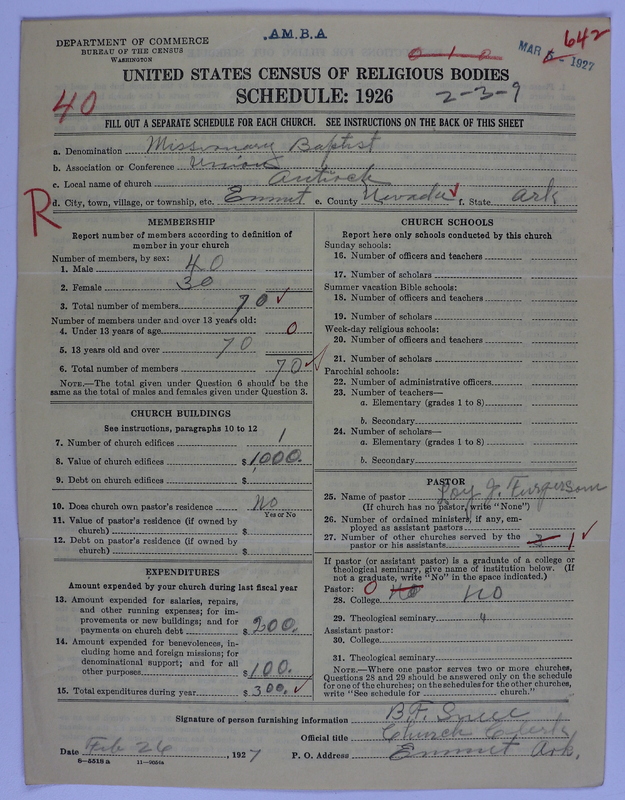 A.M.B.A
DEPARTMENT OF COMMERCE
BUREAU OF THE CENSUS
WASHINGTON
0-1-0
MAR 1927
642
UNITED STATES CENSUS OF RELIGIOUS BODIES
40
SCHEDULE: 1926
2-3-9
FILL OUT A SEPARATE SCHEDULE FOR EACH CHURCH. SEE INSTRUCTIONS ON THE BACK OF THIS SHEET
a. Denomination Missionary Baptist
b. Association or Conference Union
c. Local name of church Antioch
R
d. City, town, village, or township, etc. Emmet e. County Nevada f. State Ark
MEMBERSHIP
Report number of members according to definition of
member in your church
Number of members, by sex:
1. Male 40
2. Female 30
3. Total number of members 70
Number of members under and over 13 years old:
4. Under 13 years of age 0
5. 13 years old and over 70
6. Total number of members 70
NOTE.—The total given under Question 6 should be the
same as the total of males and females given under Question 3.
CHURCH BUILDINGS
See instructions, paragraphs 10 to 12
7. Number of church edifices 1
8. Value of church edifices $1000.
9. Debt on church edifices $
10. Does church own pastor's residence No
Yes or No
11. Value of pastor's residence (if owned by
church) $
12. Debt on pastor's residence (if owned by
church) $
EXPENDITURES
Amount expended by your church during last fiscal year
13. Amount expended for salaries, repairs,
and other running expenses; for im-
provements or new buildings; and for
payments on church debt $200.
14. Amount expended for benevolences, in-
cluding home and foreign missions; for
denominational support; and for all
other purposes $100.
15. Total expenditures during year $300.
CHURCH SCHOOLS
Report here only schools conducted by this church
Sunday schools:
16. Number of officers and teachers
17. Number of scholars
Summer vacation Bible schools:
18. Number of officers and teachers
19. Number of scholars
Week-day religious schools:
20. Number of officers and teachers
21. Number of scholars
Parochial schools:
22. Number of administrative officers
23. Number of teachers—
a. Elementary (grades 1 to 8)
b. Secondary
24. Number of scholars—
a. Elementary (grades 1 to 8)
b. Secondary
PASTOR
25. Name of pastor Roy J. Furgerson
(If church has no pastor, write "None")
26. Number of ordained ministers, if any, em-
ployed as assistant pastors
27. Number of other churches served by the
pastor or his assistants 3 1
If pastor (or assistant pastor) is a graduate of a college or
theological seminary, give name of institution below. (If
not a graduate, write "No" in the space indicated.)
Pastor: 0 No
28. College No
29. Theological seminary "
Assistant pastor:
30. College
31. Theological seminary
NOTE.—Where one pastor serves two or more churches,
Questions 28 and 29 should be answered only on the schedule
for one of the churches; on the schedules for the other churches,
write "See schedule for church."
Signature of person furnishing information B.F.
Official title Church Clerk
Date Feb 26, 1927 P. O. Address Emmet Ark.